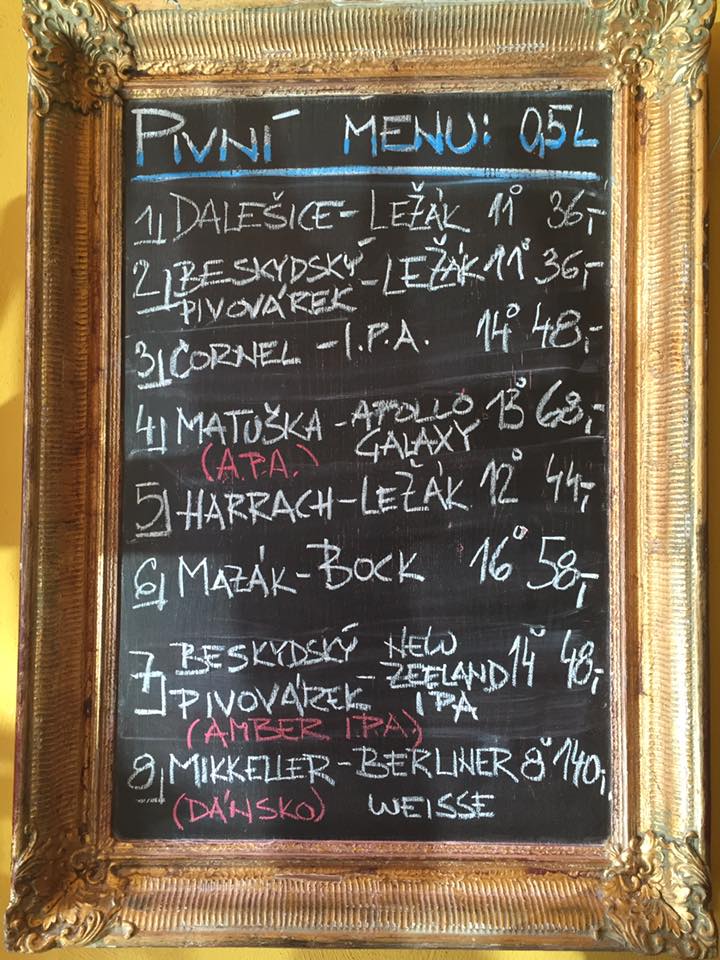 PIVNÍ MENU: 0,5L
1) DALEŠICE - LEŽÁK 11° 36,-
2) BESKYDSKÝ PIVOVÁREK - LEŽÁK 11° 36,-
3) ČORNEL - I.P.A. 14° 48,-
4) MATUŠKA - APOLLO GALAXY 13° 68,-
(A.P.A.)
5) HARRACH - LEŽÁK 12° 44,-
6) MAZÁK - BOCK 16° 58,-
7) BESKYDSKÝ PIVOVÁREK - NEW ZEELAND IPA 14° 48,-
(AMBER I.P.A.)
8) MIKKELLER - BERLINER WEISSE 8° 140,-
(DÁNSKO)